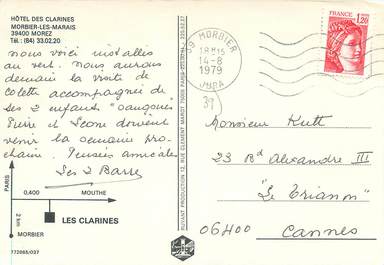 HÔTEL DES CLARINES
MORBIER-LES-MARAIS
39400 MOREZ
Tél.: (84) 33.02.20
nous voici installés
au vert. nous aurons
demain la visite de
Colette accompagnée de
ses 2 enfants
Pierre et doivent
venir la semaine pro-
chaine. Pensées amicales
Les 2 Barre
PARIS
0,400
MOUTHE
2 km
LES CLARINES
MORBIER
772065/037
RUYANT PRODUCTION, 12, RUE CLEMENT MAROT 75008 PARIS
39 MORBIER
18H15
14-8
1979
JURA
39
FRANCE
1,20
Monsieur Kutt
23 Bd Alexandre III
"Le Trianon"
06400
Cannes